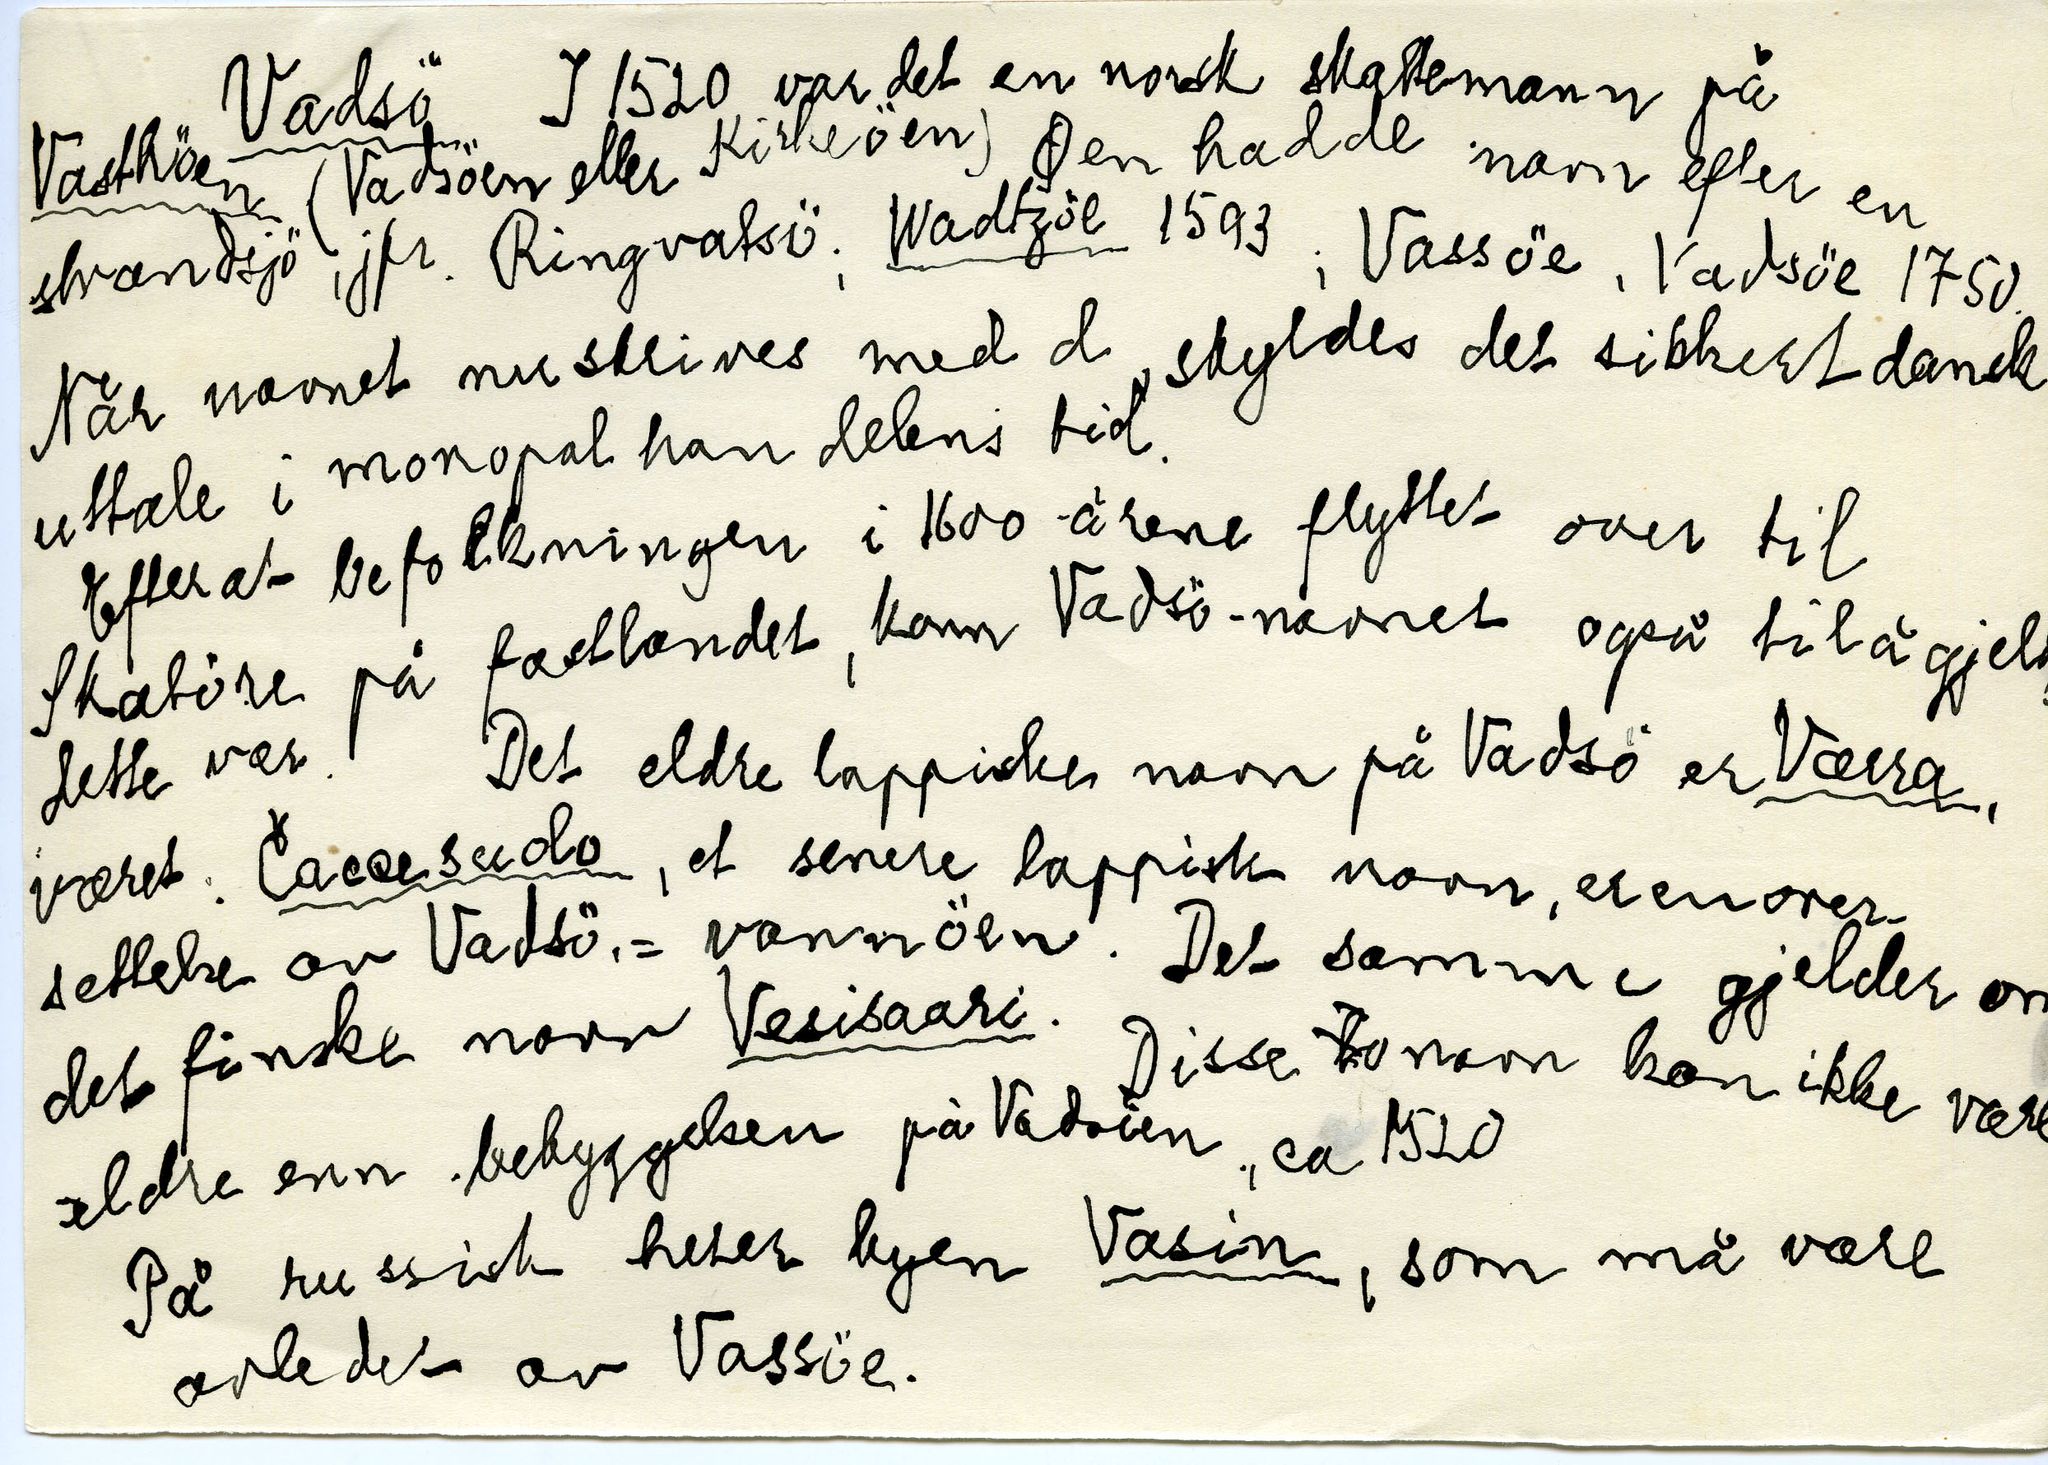 Vadsö I 1520 var det en norsk skattemann på
Vasthöen (Vadsöen eller Kirkeöen) Den hadde navn efter en
strandsjö, jfr. Ringvatsö; Wadtzöe 1593; Vassöe, Vadsöe 1750.
Når navnet nu skrives med d, skyldes det sikkert dansk
uttale i monopolhandelens tid.
Efter at befolkningen i 1600-årene flyttet over til
Skatöre på fastlandet, kom Vadsö-navnet også til å gjelde
dette vær. Det eldre lappiske navn på Vadsö er Værra,
været. Čaccesudo, et senere lappisk navn, er en over-
settelse av Vadsö, = vannöen. Det samme gjelder om
det finske navn Vesisaari. Disse to navn kan ikke være
eldre enn bebyggelsen på Vadsöen, ca 1520
På russisk heter byen Vasin, som må være
avledet av Vassöe.